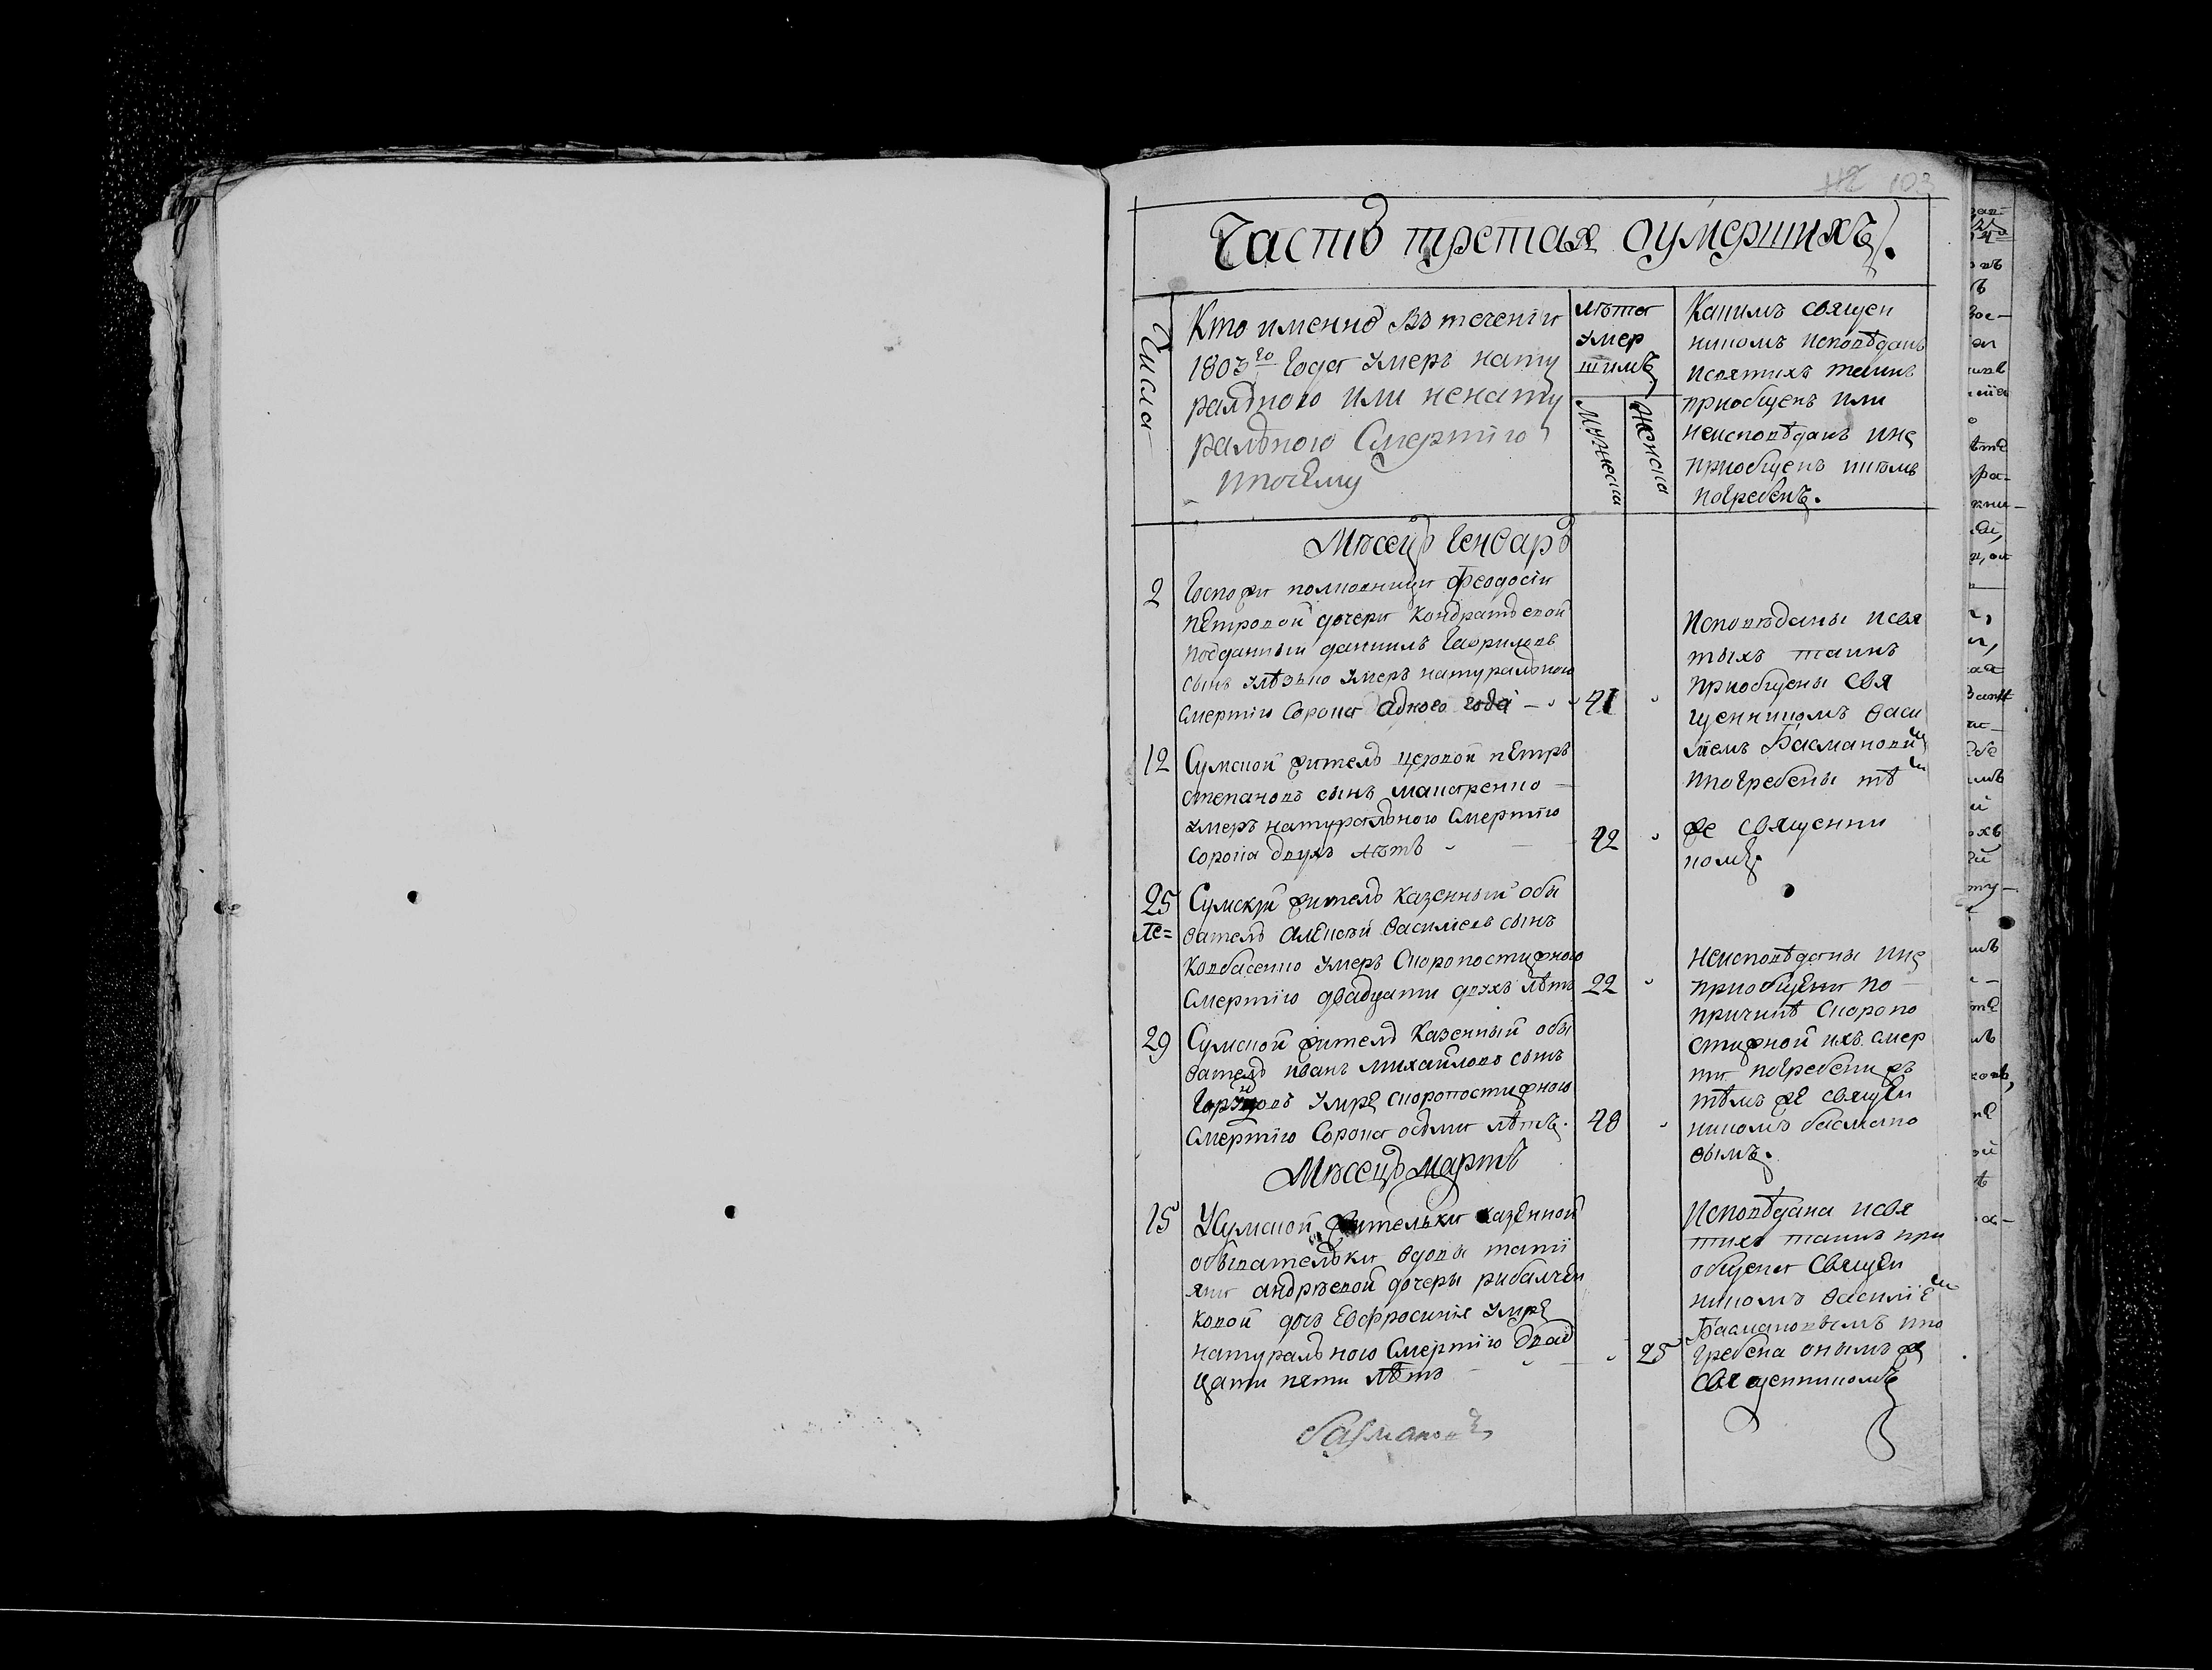 103
Часть третая оумершихъ.
Числа
Кто именно въ теченіи
1803го Года Умеръ нату
ралною или ненату
ральною Смертію
ипочему
лѣта
умер
шимъ
Мужеска
Женска
Какимъ священ
никомъ исповѣданъ
исвятихъ таинъ
приобщенъ или
неисповѣданъ ине
приобщенъ икѣмъ
погребенъ.
Мѣсецъ Генварь
2
Госпожи полковници Феодосіи
Петровой дочери Кондратьевой
подданный даниилъ Гавриловъ
сынъ умеръ натуральною
смертію Сорока адного года
41
Исповѣданы исвя
тыхъ таинъ
приобщены Свя
щенникомъ васи
ліемъ Басмановим
ипогребены тѣм
же священни
комъ.
12
Сумской житель цеховой петръ
степановъ сынъ
умеръ натуральною Смертію
сорока двухъ лѣтъ
42
25
Сумскій житель казенный обы
ватель алексѣй василіевъ сынъ
Ковбасенко умеръ Скоропостижною
смертію двадцати двухъ лѣтъ
22
неисповѣданы ине
приобщени по
причинѣ Скоропо
стижной ихъ смер
ти погребени жъ
тѣмъ же священ
никомъ басмано
вымъ.
29
Сумской житель Казенный обы
ватель иванъ михайловъ сынъ
умре скоропостижною
смертію Сорока осьми лѣтъ.
48
Мѣсецъ мартъ
15
УСумской жительки казенной
обывательки вдовы татія
яни андрѣевой дочеры рибалчен
ковой дочь Евфросинія умре
натуральною Смертію двад
цати пяти лѣтъ
25
Исповѣдана исвя
тихъ таинъ при
общена Священ
никомъ василіем
Басмановымъ ипо
гребена онымъ же
священникомъ
Басмановъ